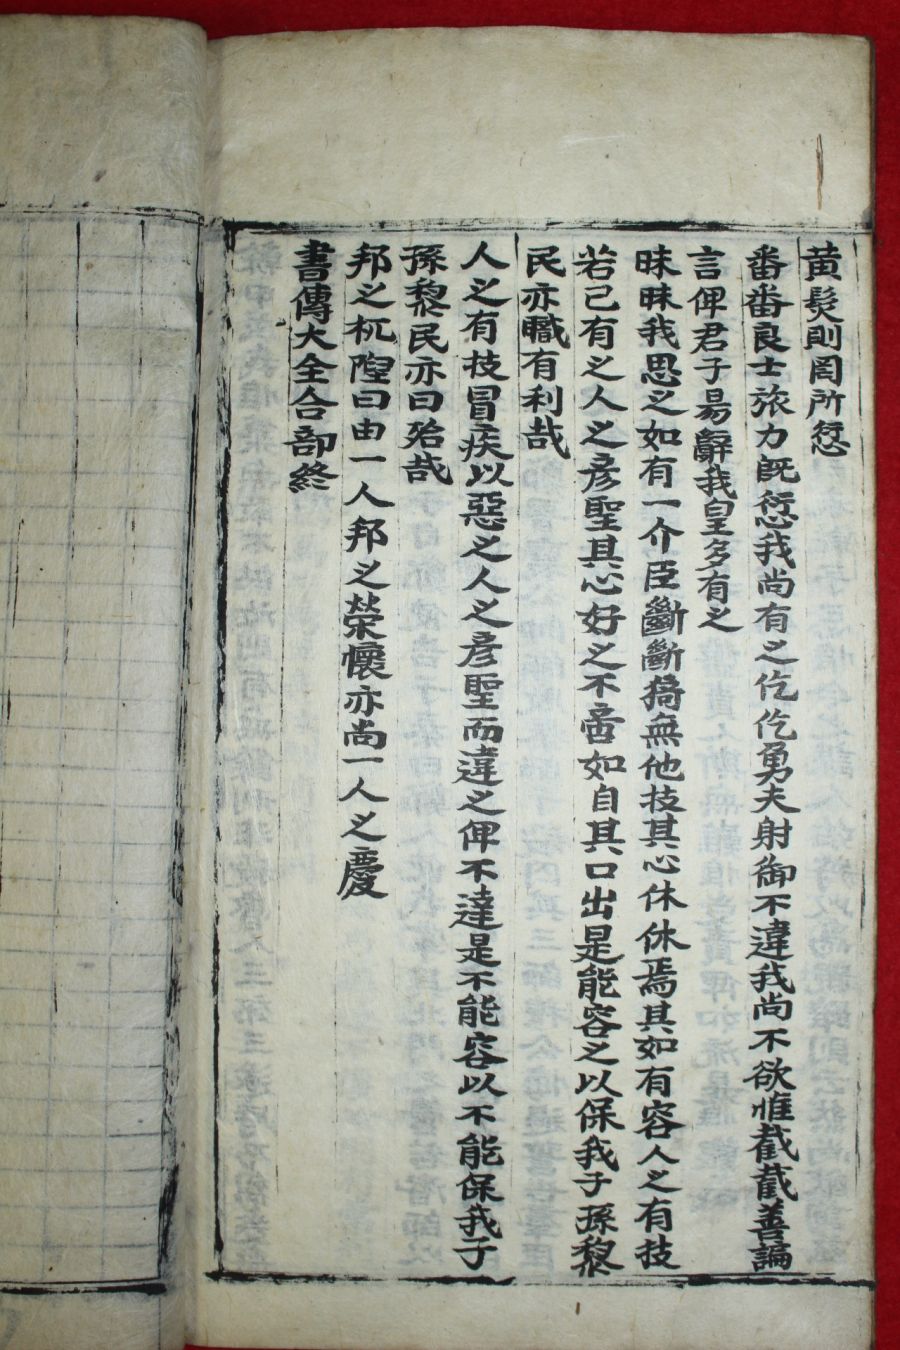 黃髮則罔所愆
番番良士旅力旣愆我尚有之仡仡勇夫射御不違我尚不欲惟截截善諞
言俾君子易辭我皇多有之
昧昧我思之如有一介臣斷斷猗無他技其心休休焉其如有容人之有技
若己有之人之彦聖其心好之不啻如自其口出是能容之以保我子孫黎
民亦職有利哉
人之有技冒疾以惡之人之彦聖而違之俾不達是不能容以不能保我子
孫黎民亦曰殆哉
邦之杌隉曰由一人邦之榮懷亦尚一人之慶
書傳大全合部終